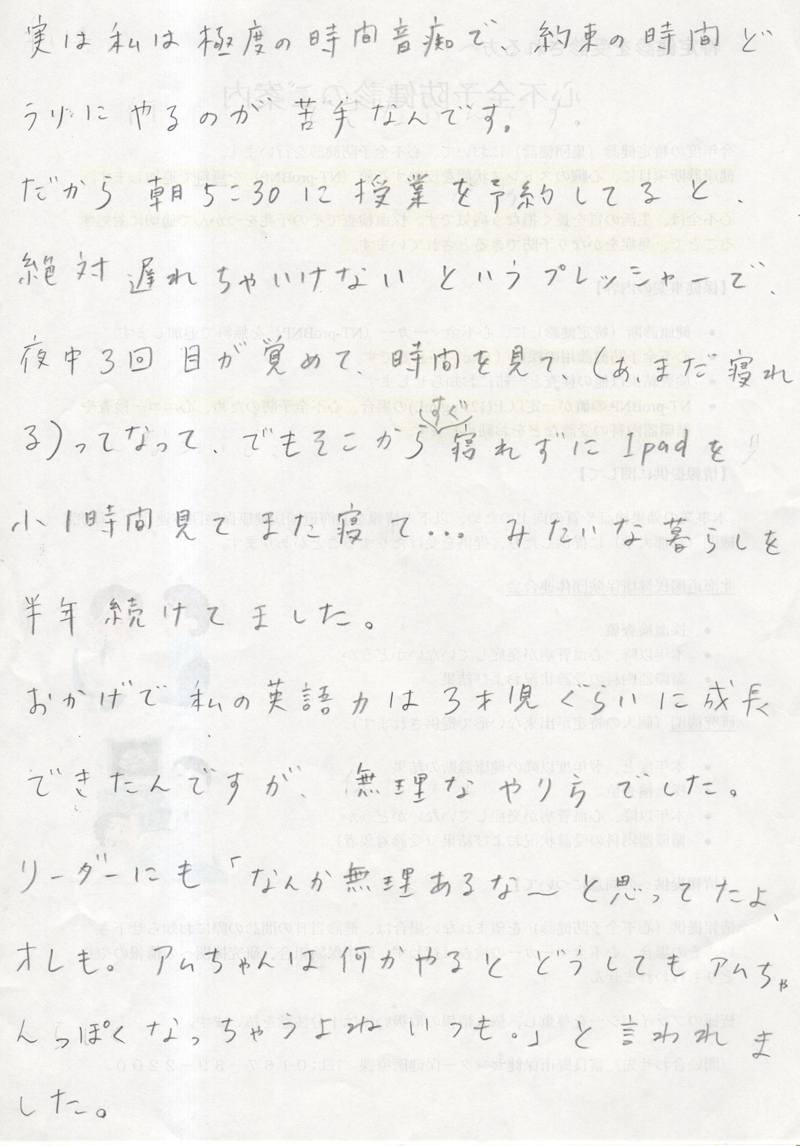 実は私は極度の時間音痴で、約束の時間ど
うりにやるのが苦手なんです。
だから朝5:30に授業を予約してると、
絶対遅れちゃいけないというプレッシャーで、
夜中3回目が覚めて、時間を見て、(あ、まだ寝れ
る)ってなって、でもそこからすぐ寝れずにIpadを
小1時間見てまた寝て… みたいな暮らしを
半年続けてました。
おかげで私の英語力は3才児ぐらいに成長
できたんですが、無理なやり方でした。
リーダーにも「なんか無理あるな〜と思ってたよ、
オレも。アムちゃんは何かやるとどうしてもアムちゃ
んっぽくなっちゃうよねいつも。」と言われま
した。